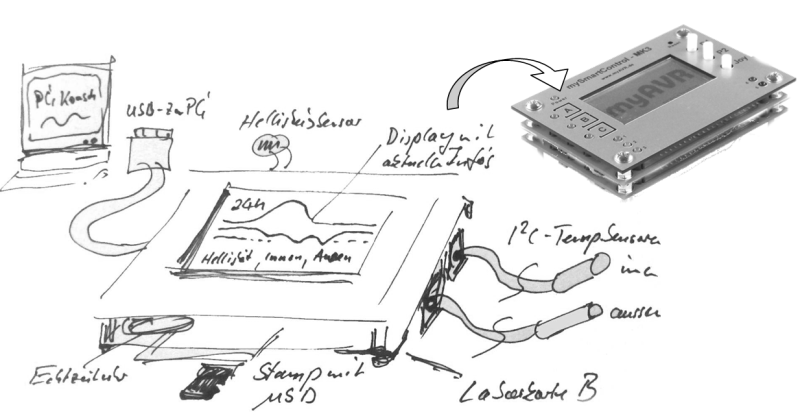 USB-zu PC
Helligkeitssensor
Display mit
aktuellen Infos
24h
Helligkeit, Innen, Aussen
I²C-TempSensoren
innen
aussen
Echtzeituhr
Stamp mit
µSD
Laborkarte B
mySmartControl - MK3
www.myAVR.de
myAVR
A
B
C
Joy